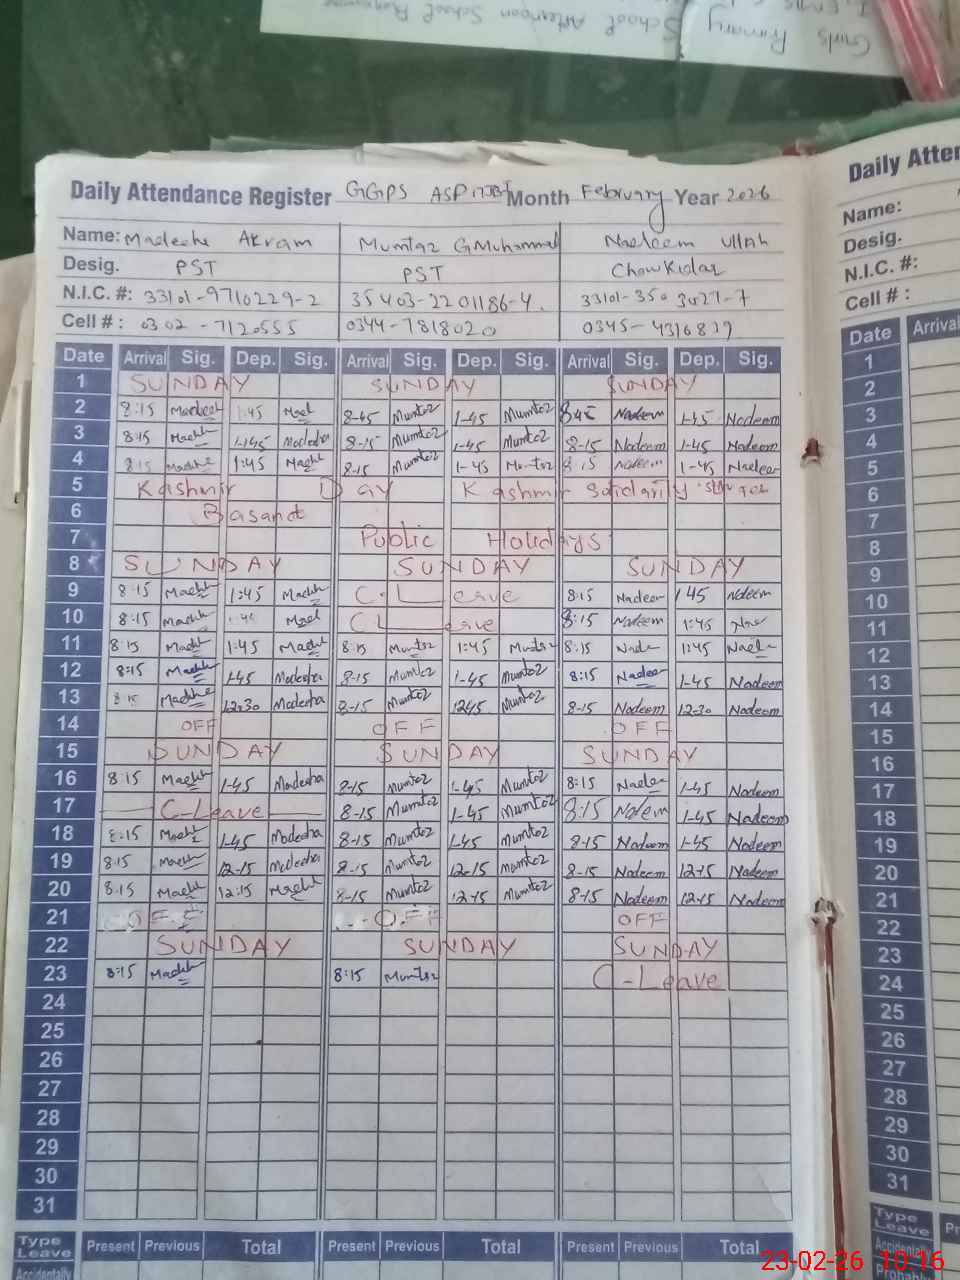 Girls Primary School Afternoon School Response
Daily Attendance Register GGPS Month February Year 2026
Name: Madeeha Akram Mumtaz G Muhammad Nadeem Ullah
Desig. PST PST Chowkidar
N.I.C. #: 33101-9710229-2 35403-2201186-4. 33101-350 3027-7
Cell # : 0302 -7120555 0344-7818020 0345-4316819
Date Arrival Sig. Dep. Sig. Arrival Sig. Dep. Sig. Arrival Sig. Dep. Sig.
1 SUNDAY SUNDAY SUNDAY
2 8:15 Madeeh 1:45 8-45 Mumtaz 1-45 Mumtaz Nadeem 1-45 Nadeem
3 8:15 1-45 Madeeha 8-15 Mumtaz 1-45 Mumtaz 8-15 Nadeem 1-45 Nadeem
4 8:15 1:45 8-15 Mumtaz 1-45 Mumtaz 8:15 Nadeem 1-45 Nadeem
5 Kashmir Day Kashmir Solidarity
6 Basant
7 Public Holidays
8 SUNDAY SUNDAY SUNDAY
9 8:15 1:45 C.Leave 8:15 Nadeem 1:45 Nadeem
10 8:15 C Leave 8:15 Nadeem 1:45
11 8:15 1:45 8:15 Mumtaz 1:45 Mumtaz 8:15 1:45
12 8:15 1-45 Madeeha 8-15 Mumtaz 1-45 Mumtaz 8:15 Nadeem 1-45 Nadeem
13 8:15 12-30 Madeeha 8-15 Mumtaz 1245 Mumtaz 8-15 Nadeem 12-30 Nadeem
14 OFF OFF OFF
15 SUNDAY SUNDAY SUNDAY
16 8:15 1-45 Madeeha 8-15 Mumtaz 1-45 Mumtaz 8:15 1-45 Nadeem
17 C-Leave 8-15 Mumtaz 1-45 Mumtaz 8:15 Nadeem 1-45 Nadeem
18 8:15 1-45 Madeeha 8-15 Mumtaz 1-45 Mumtaz 8-15 Nadeem 1-45 Nadeem
19 8:15 12-15 Madeeha 8-15 Mumtaz 12-15 Mumtaz 8-15 Nadeem 12-15 Nadeem
20 8:15 12:15 8-15 Mumtaz 12-15 Mumtaz 8-15 Nadeem 12-15 Nadeem
21 OFF OFF OFF
22 SUNDAY SUNDAY SUNDAY
23 8:15 8:15 Mumtaz C-Leave
24
25
26
27
28
29
30
31
Type Leave Present Previous Total Present Previous Total Present Previous Total
Accidentally
Daily Atten
Name:
Desig.
N.I.C. #:
Cell # :
Date Arrival
1
2
3
4
5
6
7
8
9
10
11
12
13
14
15
16
17
18
19
20
21
22
23
24
25
26
27
28
29
30
31
Type Leave
23-02-26 10:16